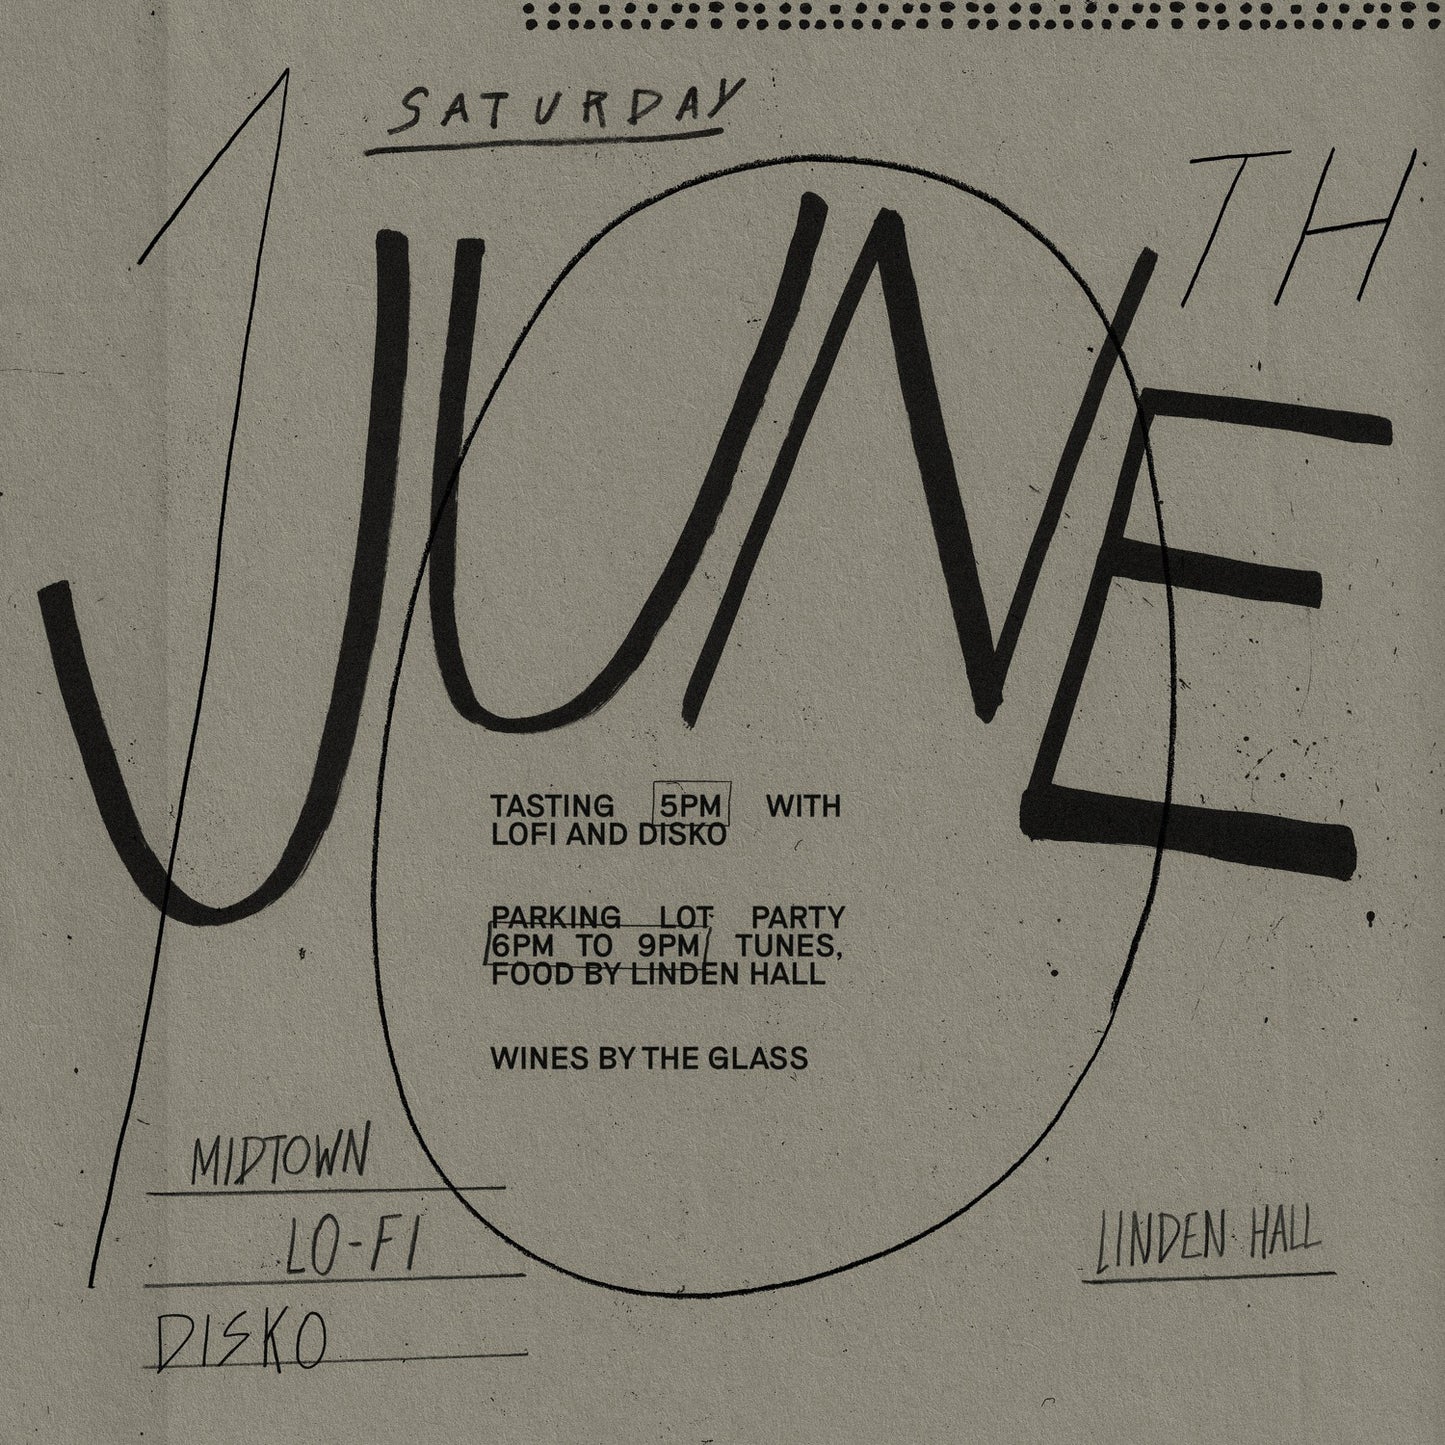 SATURDAY
10
TH
JUNE
TASTING 5PM WITH
LOFI AND DISKO
PARKING LOT PARTY
6PM TO 9PM TUNES,
FOOD BY LINDEN HALL
WINES BY THE GLASS
MIDTOWN
LO-FI
DISKO
LINDEN HALL